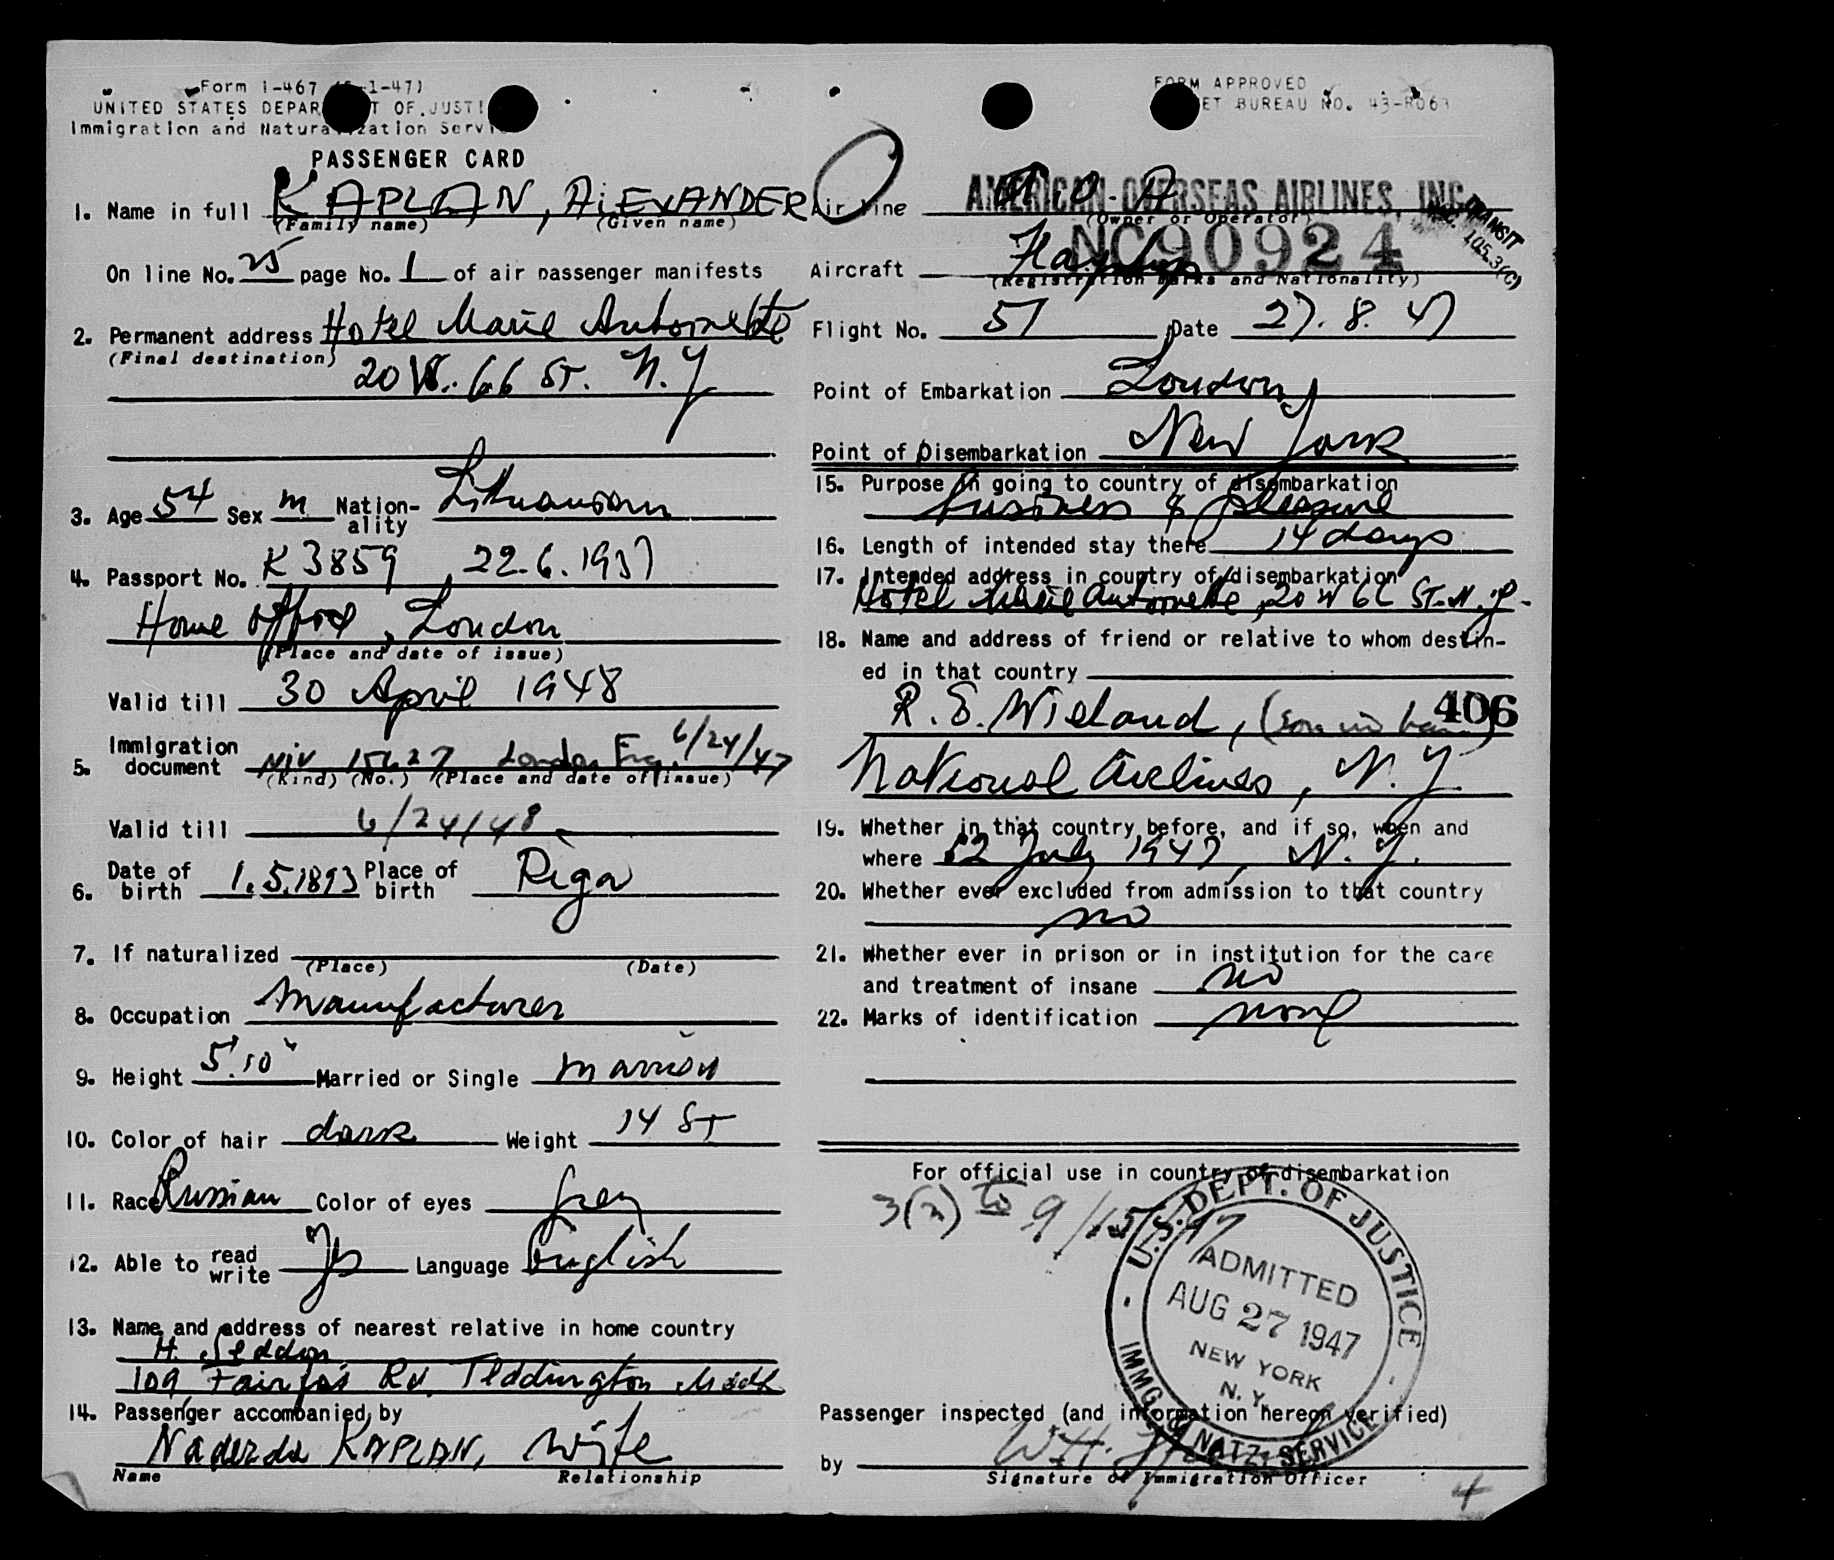 Form I-467 (5-1-47)
UNITED STATES DEPAR T OF JUSTI
Immigration and Natura zation Servi
PASSENGER CARD
1. Name in full KAPLAN, ALEXANDER
(Family name) (Given name)
On line No. 25 page No. 1 of air passenger manifests
2. Permanent address Hotel Marie Antoinette
(Final destination)
20 W. 66 ST. N.Y
3. Age 54 Sex m Nation-ality Lithuanian
4. Passport No. K 3859, 22.6.1937
Home Office, London
(Place and date of issue)
Valid till 30 April 1948
5. Immigration document NIV 15627 London Eng. 6/24/47
(Kind) (No.) (Place and date of issue)
Valid till 6/24/48
6. Date of birth 1.5.1893 Place of birth Riga
7. If naturalized
(Place) (Date)
8. Occupation Manufacturer
9. Height 5'.10" Married or Single married
10. Color of hair dark Weight 14 ST
11. Race Russian Color of eyes grey
12. Able to read write yes Language English
13. Name and address of nearest relative in home country
H. Seddon
109, Fairfax Rd. Teddington Middx
14. Passenger accompanied by
KAPLAN, wife
Name Relationship
FORM APPROVED
ET BUREAU NO. 43-R063
Air line A.O.A. AMERICAN OVERSEAS AIRLINES, INC.
(Owner or Operator)
TRANSIT
105.3(C)
Aircraft Flagship NC90924
(Registration Marks and Nationality)
Flight No. 57 Date 27.8.47
Point of Embarkation London
Point of Disembarkation New York
15. Purpose in going to country of disembarkation
business & pleasure
16. Length of intended stay there 14 days
17. Intended address in country of disembarkation
Hotel Marie Antoinette, 20 W 66 ST. N.Y.
18. Name and address of friend or relative to whom destin-
ed in that country
R. S. Wieland, (son in law) 406
National Airlines, N.Y.
19. Whether in that country before, and if so, when and
where 12 July 1947, N.Y.
20. Whether ever excluded from admission to that country
no
21. Whether ever in prison or in institution for the care
and treatment of insane no
22. Marks of identification none
For official use in country of disembarkation
3(2) to 9/15/47
U.S. DEPT. OF JUSTICE
ADMITTED
AUG 27 1947
NEW YORK
N.Y.
IMMG. & NATZ. SERVICE
Passenger inspected (and information hereon verified)
by W.H.
Signature of Immigration Officer
4